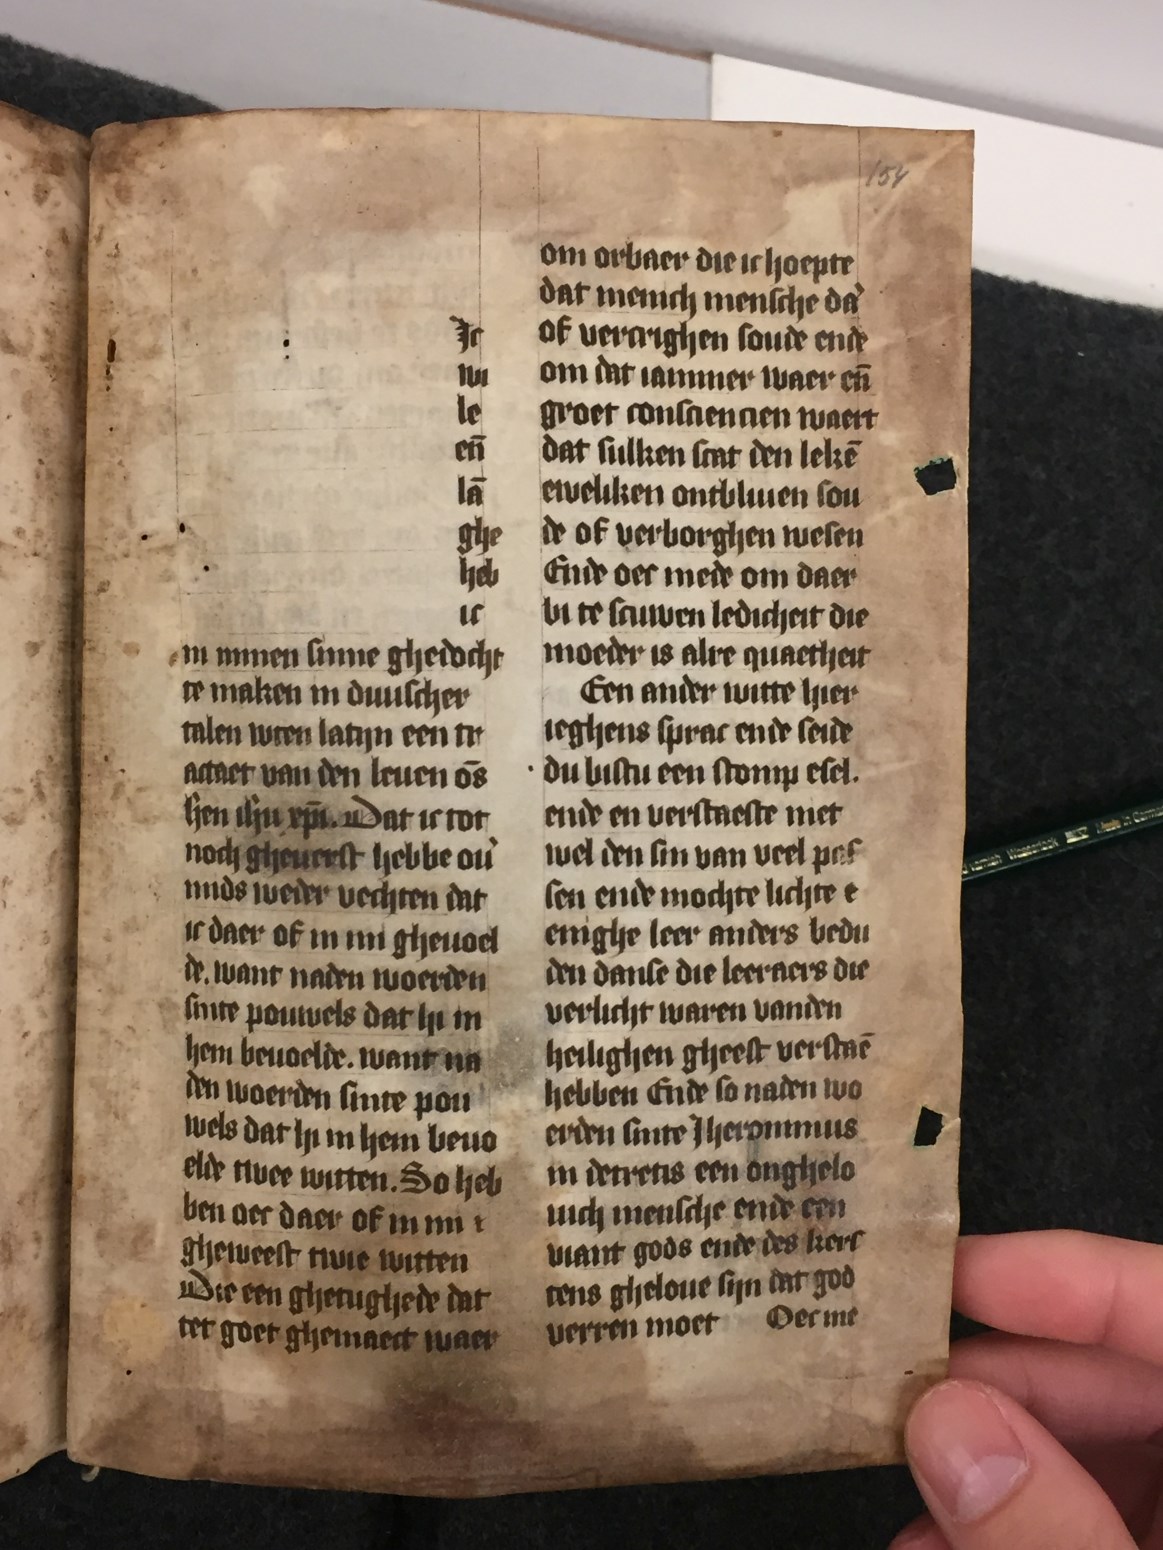 154
Jc
wi
le
en̄
lā
ghe
heb
ic
in minen sinne ghedocht
te maken in duuscher
talen wten latijn een tr
actaet van den leuen ōs
hen ihū xp̄i. Dat ic tot
noch gheuerst hebbe ou̓
mids weder vechten dat
ic daer of in mi gheuoel
de. want naden woerden
sinte pouwels dat hi in
hem beuoelde. want na
den woerden sinte pou
wels dat hi in hem beuo
elde twee witten. So heb
ben oec daer of in mi
gheweest twie witten
Die een ghetughede dat
tet goet ghemaect waer
om orbaer die ic hoepte
dat menich mensche da̓
of vercrighen soude ende
om dat iammer waer en̄
groet consciencien waert
dat sulken scat den lekē
eweliken ontbliuen sou
de of verborghen wesen
Ende oec mede om daer
bi te scuwen ledicheit die
moeder is alre quaetheit
Een ander witte hier
ieghens sprac ende seide
du bistu een stomp esel.
ende en verstaeste niet
wel den sin van veel pas
sen ende mochte lichte e
enighe leer anders bedu
den danse die leeraers die
verlicht waren vanden
heilighen gheest verstaē
hebben Ende so naden wo
erden sinte Jheronimus
in decretis een onghelo
uich mensche ende een
viant gods ende des kers
tens gheloue sijn dat god
verren moet Oec me